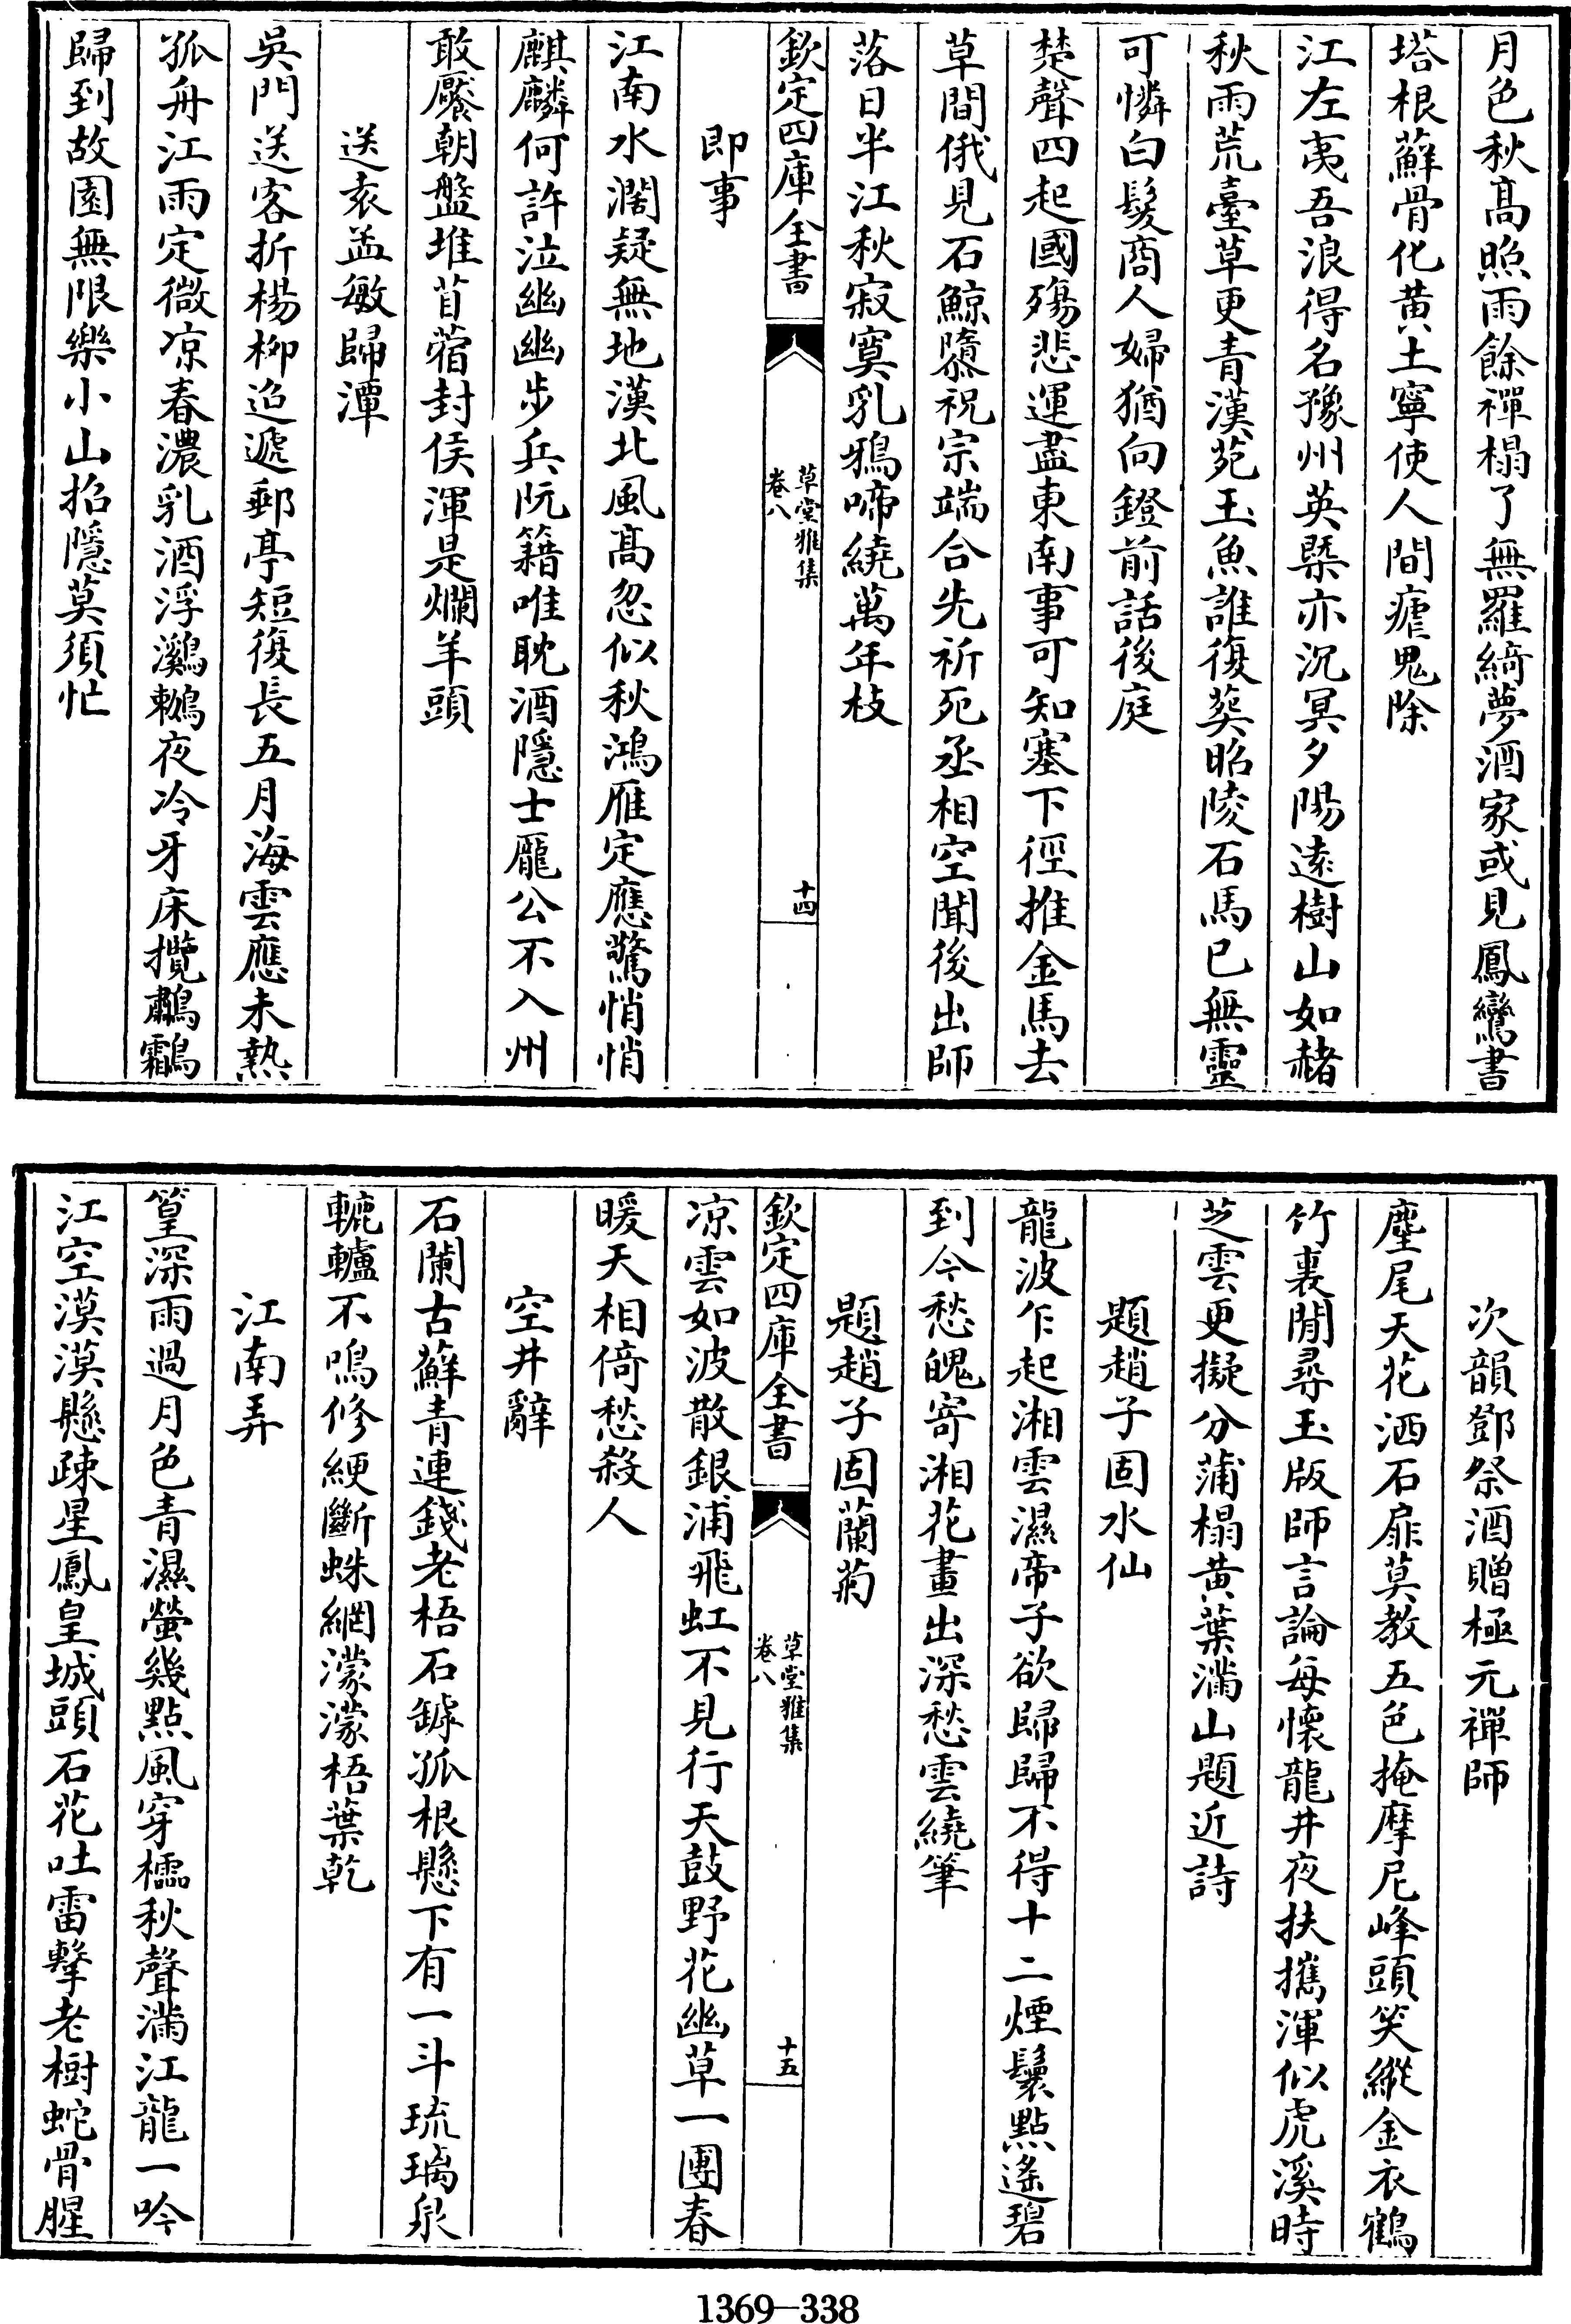 月色秋高照雨餘禪榻了無羅綺夢酒家或見鳳鸞書
塔根蘚骨化黃土寧使人間瘧鬼除
江左夷吾浪得名豫州英槩亦沉冥夕陽遠樹山如赭
秋雨荒臺草更青漢苑玉魚誰復葬昭陵石馬已無靈
可憐白髮商人婦猶向鐙前話後庭
楚聲四起國殤悲運盡東南事可知塞下徑推金馬去
草間俄見石鯨隳祝宗端合先祈死丞相空聞後出師
落日半江秋寂寞乳鴉啼繞萬年枝
欽定四庫全書
草堂雅集
卷八
十四
即事
江南水濶疑無地漠北風髙忽似秋鴻雁定應驚悄悄
麒麟何許泣幽幽步兵阮籍唯耽酒隱士龎公不入州
敢饜朝盤堆苜蓿封侯渾是爛羊頭
送袁孟敏歸潭
吳門送客折楊柳迢遞郵亭短復長五月海雲應未熱
孤舟江雨定微凉春濃乳酒浮鸂鶒夜冷牙床攬鷫鸘
歸到故園無限樂小山招隱莫須忙
次韻鄧祭酒贈極元禪師
麈尾天花洒石扉莫教五色掩摩尼峰頭笑縱金衣鶴
竹裏閒尋玉版師言論每懷龍井夜扶攜渾似虎溪時
芝雲更擬分蒲榻黄葉滿山題近詩
題趙子固水仙
龍波乍起湘雲濕帝子欲歸歸不得十二煙鬟點遙碧
到今愁魄寄湘花畫出深愁雲繞筆
題趙子固蘭菊
欽定四庫全書
草堂雅集
卷八
十五
凉雲如波散銀浦飛虹不見行天鼓野花幽草一團春
暖天相倚愁殺人
空井辭
石闌古蘚青連錢老梧石罅孤根懸下有一斗琉璃泉
轆轤不鳴修綆斷蛛網濛濛梧葉乾
江南弄
篁深雨過月色青濕螢幾點風穿櫺秋聲滿江龍一吟
江空漠漠懸疎星鳳皇城頭石花吐雷擊老樹蛇骨腥
1369—338